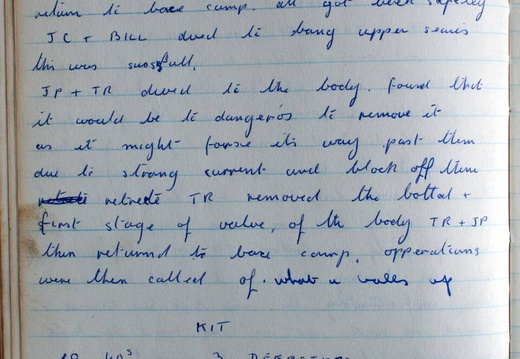 return to base camp. all got back safely
JC + BILL dived to bang upper series
this was sucsfull.
JP + TR dived to the body. found that
it would be to dangeros to remove it
as it might forse its way past them
due to strong current and block off there
retrete TR removed the bottal +
first stage of valve, of the body TR + JP
then returnd to base camp. opperations
were then called of. what a balls up
KIT